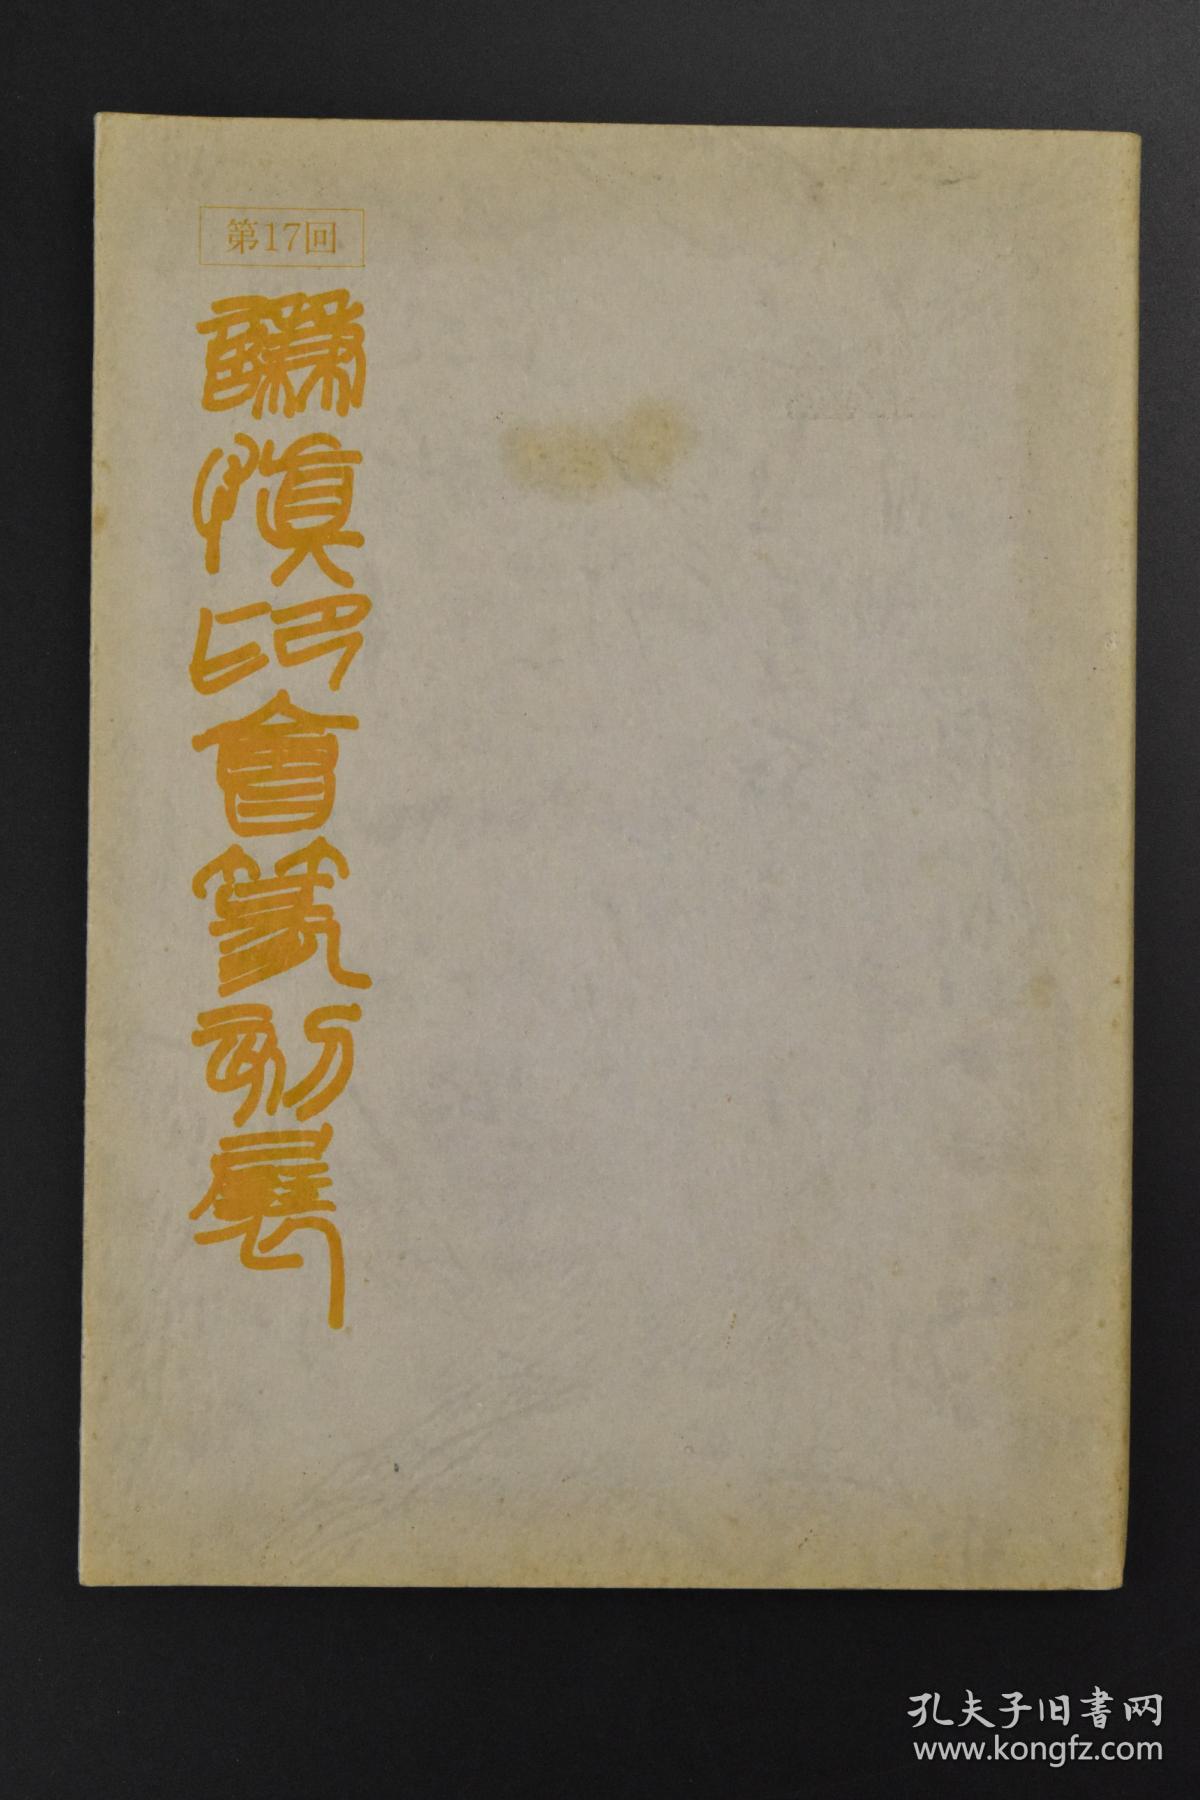 第17回
謙慎印會篆刻展
孔夫子旧书网
www.kongfz.com